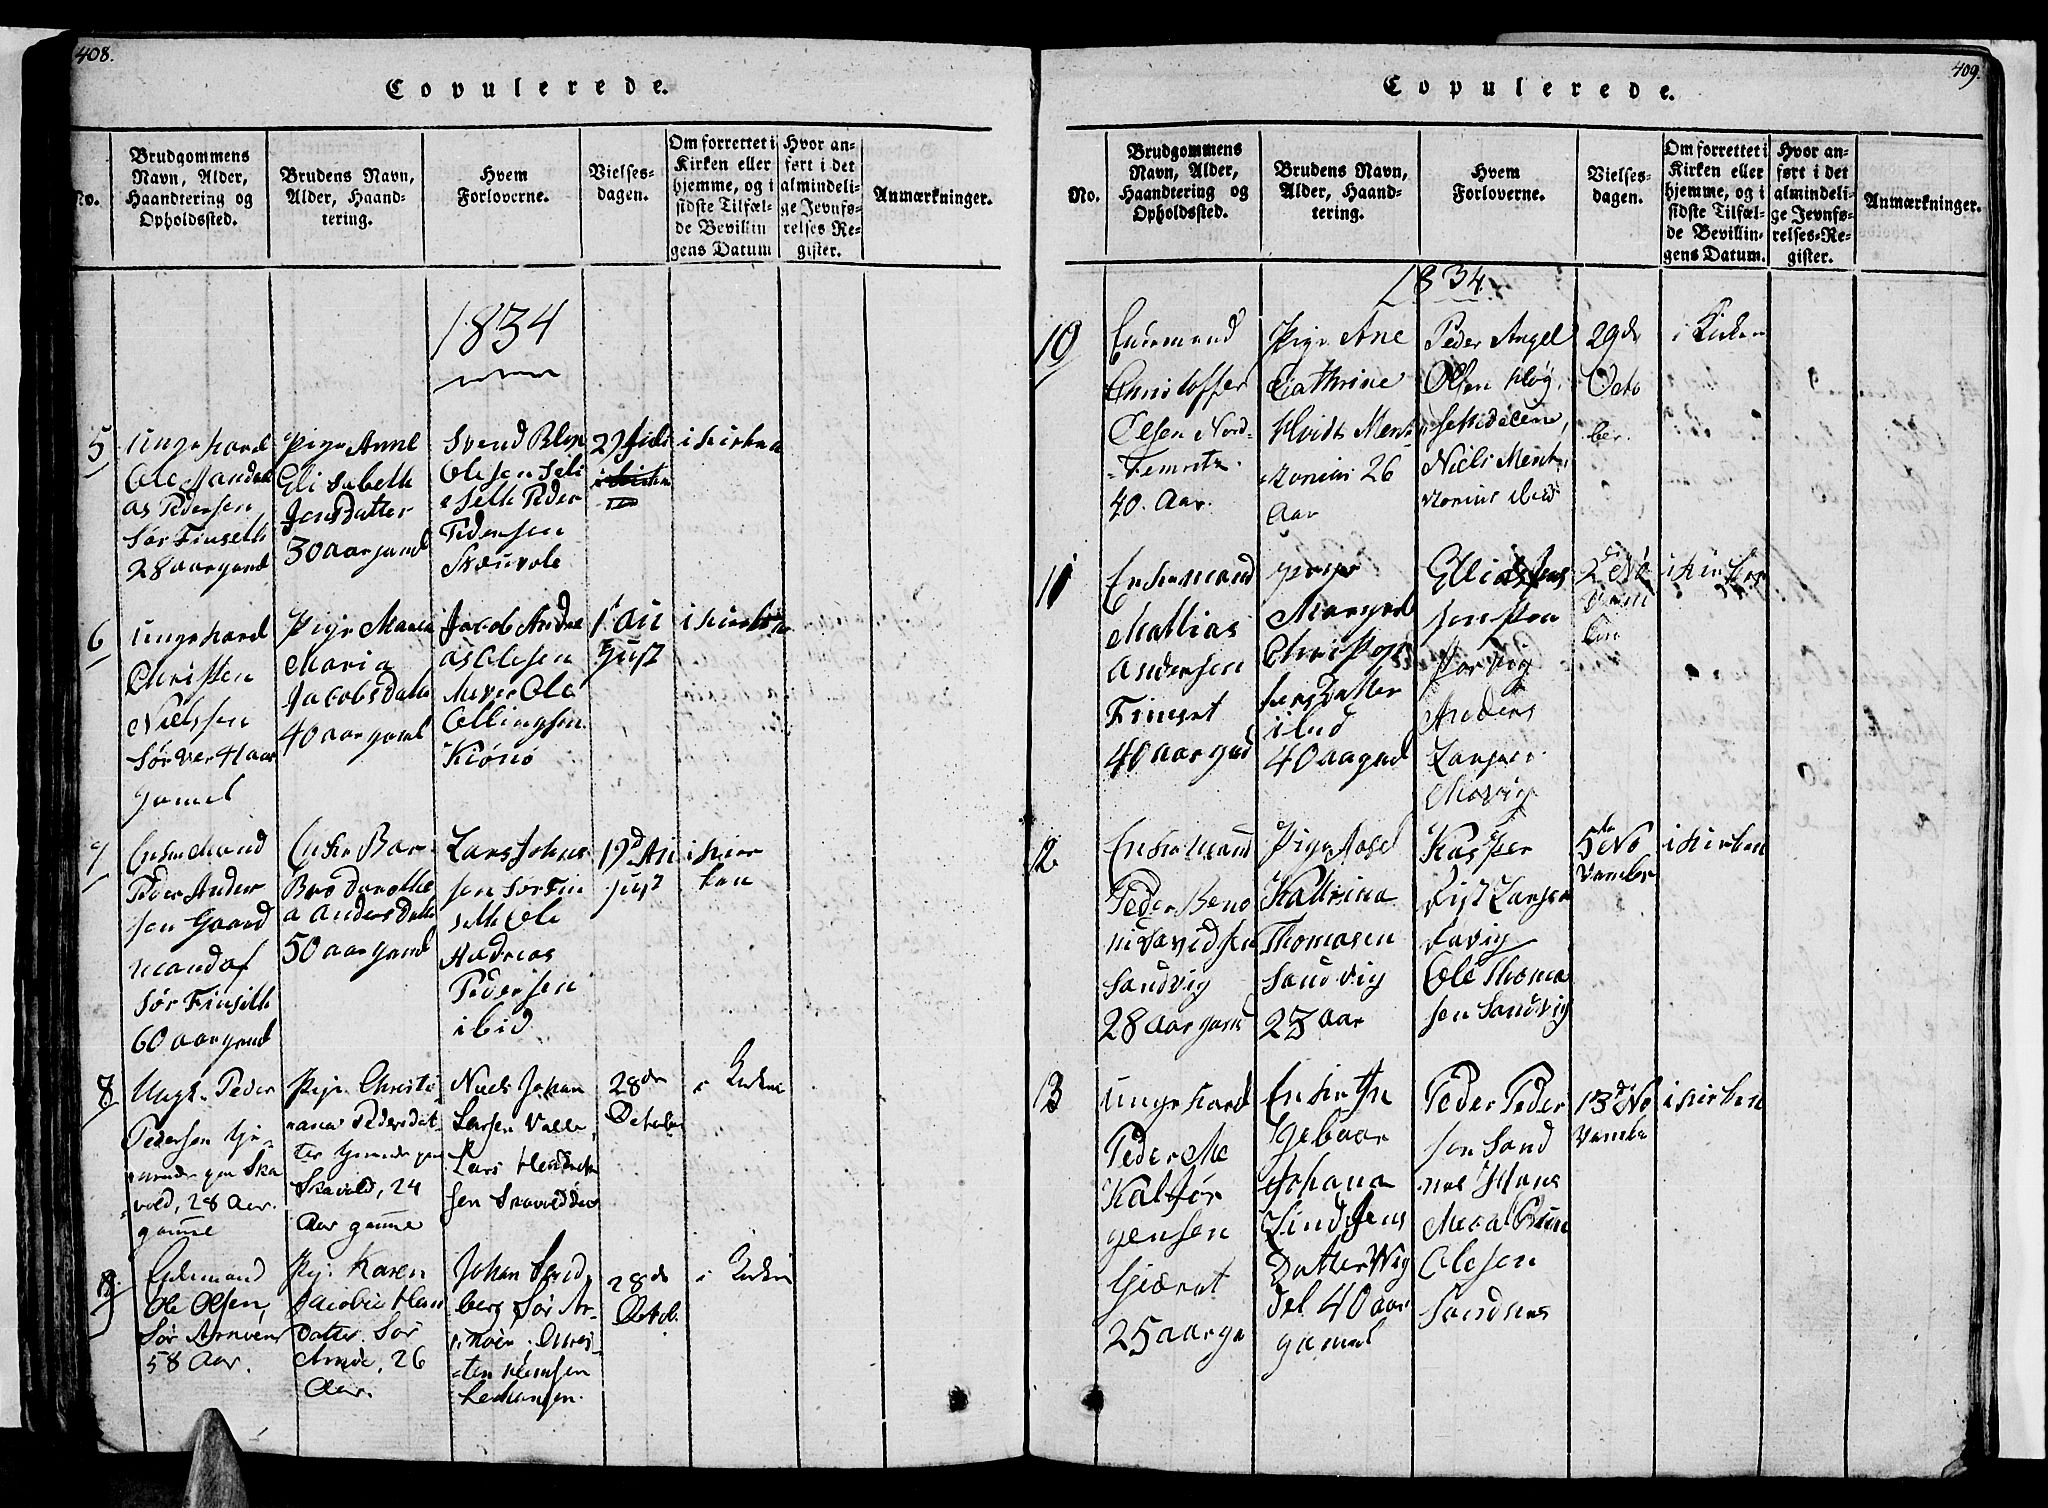 408.
Copulerede.
No.
Brudgommens
Navn, Alder,
Haandtering og
Opholdssted.
Brudens Navn,
Alder, Haand-
tering.
Hvem
Forloverne.
Vielses-
dagen.
Om forrettet i
Kirken eller
hjemme, og i
sidste Tilfæl-
de Bevillin
gens Datum
Hvor an-
ført i det
almindeli-
ge Jevnfø-
relses Re-
gister.
Anmærkninger.
1834
5
Ungekarl
Ole Andre
as Pedersen
Sør Finseth
28 aar gaml
Pige Anne
Elisabeth
Jens Datter
30 aar gaml
Svend
Olesen
Seth Peder
Pedersen
i Kirken
6
Ungekarl
Christen
Nielssen
Sørver 41 aar
gamel
Pige Maren
Maria
Jacobs Datter
40 aar gaml
Jacob Andre
as Olesen
Mever Ole
Ellingsen
Kiønø
1 Au
gust
i Kirken
7
Enkemand
Peder Ander
sen Gaard
mand af
Sør Finseth
60 aar gaml
Enke Bar
Bro Dorothe
a Anders Datter
50 aar gaml
Lars Johns
sen Sør Fin
seth Ole
Andreas
Pedersen
ibid
19d Au
gust
i Kier
ken
8
Ungk. Peder
Pedersen
vold, 28 Aar
gamme
Pige Christi
nana Pedersdat-
ter
Skavold, 24
Aar gamme
Niels Johan
Larsen Valle,
Lars Hendrik
sen
28de
October
i Kirken
9
Enkemand
Ole Olsen,
Sør Arnøen
58 Aar.
Pige Karen
Jacobie Han
Datter Sør
Arnøe, 26
Aar.
Johan
berg Sør Ar-
nøen
28de
Octob.
i Kirken
409.
Copulerede.
No.
Brudgommens
Navn, Alder,
Haandtering og
Opholdssted.
Brudens Navn,
Alder, Haand-
tering.
Hvem
Forloverne.
Vielses-
dagen.
Om forrettet i
Kirken eller
hjemme, og i
sidste Tilfæl-
de Bevillin-
gens Datum.
Hvor an-
ført i det
almindeli-
ge Jevnfø-
relses-Re-
gister.
Anmærkninger.
1834.
10
Enkemand
Christoffer
Olsen Nord-
40. Aar.
Pige Ane
Cathrine
Hvidt Ment
zonius 26
Aar
Peder Angel
Olsen Høg-
sethdalen,
Niels Ment
zonius ibid
29de
Octo
ber.
i Kirken
11
Enkemand
Mathias
Andersen
Finset
40 aar gaml
pige
Margred
Christop
hersdatter
ibid
40 aar gaml
Ellias Jens
sen
Anders
Larsen
Movig
2de No
vem
ber
i Kirken
12
Enkemand
Peder Beno
ni Davidsen
Sandvig
28 aar gaml
Pige Aasel
Katrina
Thomasen
Sandvig
23 aar
Kasper
Fist Larsen
Favig
Ole Thoma
sen Sandvig
5te No
vember
i Kirken
13
Ungekarl
Peder Me
Kal Jør
gensen
25 aar ga
Enke In
geboar
Johana
Lind Jens
Datter Vig
del 40 aar
gamel
Peder Peder
sen Sand
nes Hans
Mekal Brun
Olesen
Sandnes
13d No
vembe
i Kirken